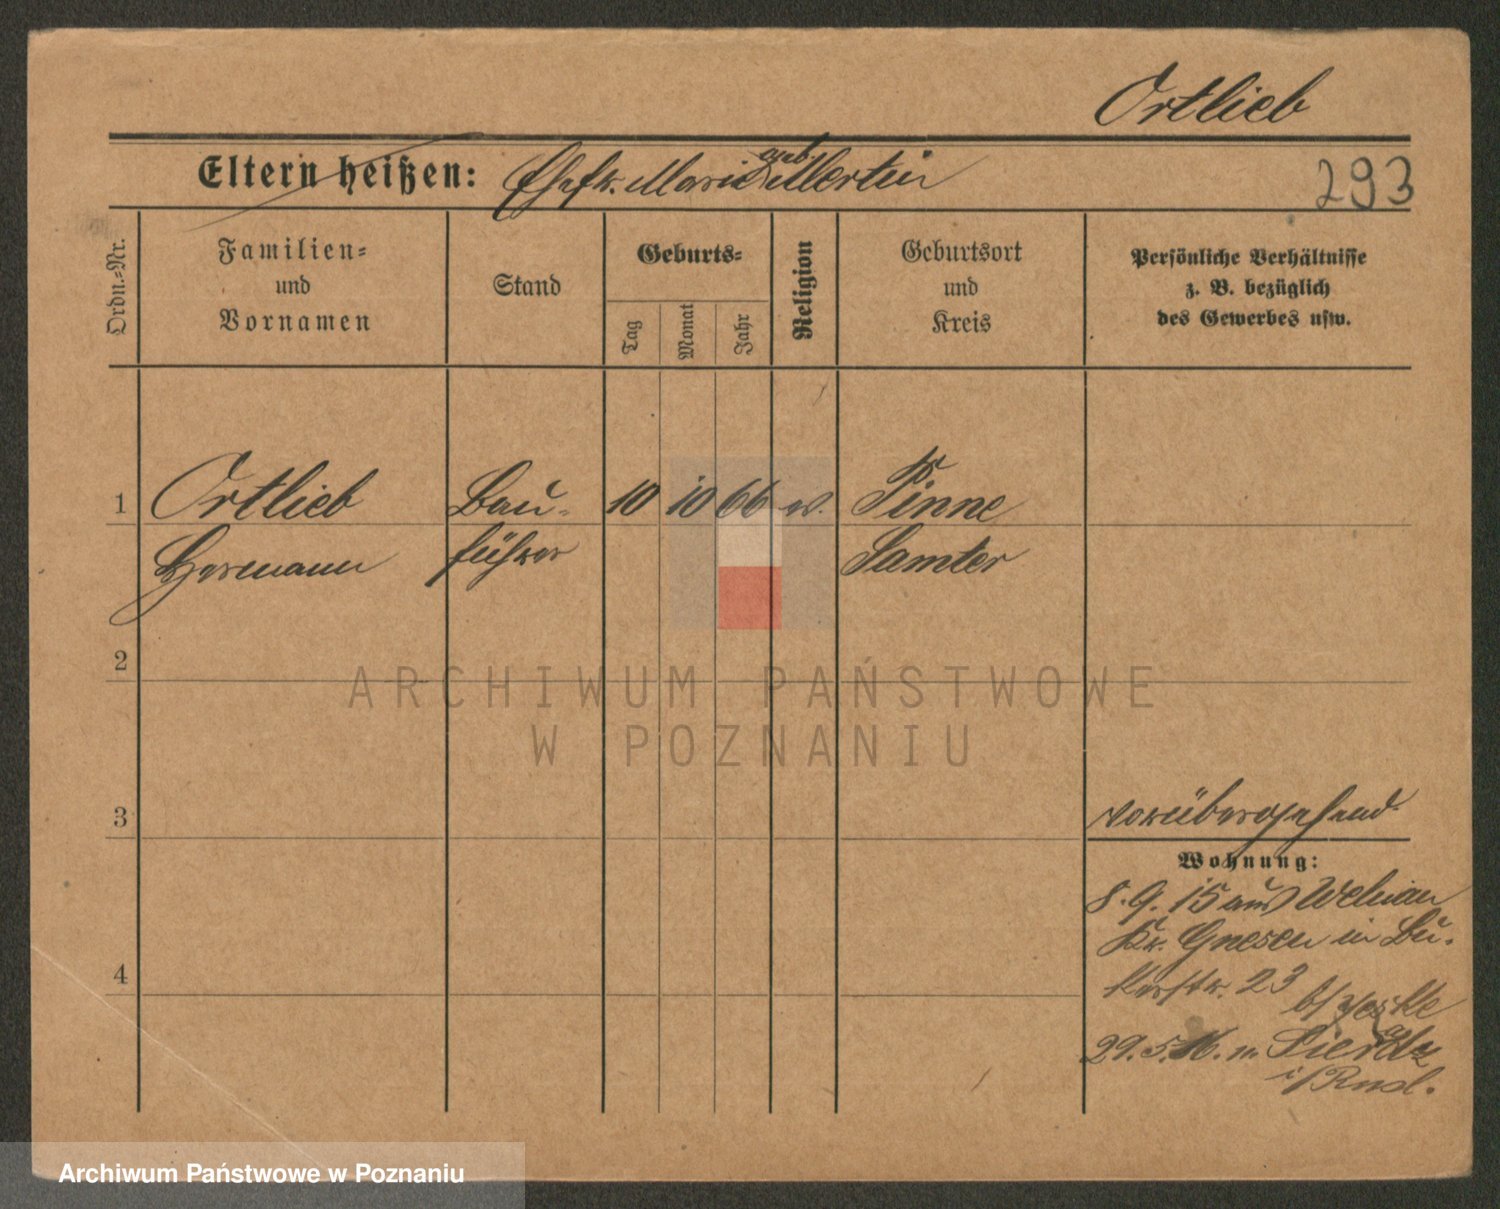 Ortlieb
Eltern heißen: Ehefr. Marie geb. Mertin
293
Ordn.-Nr.
Familien-
und
Vornamen
Stand
Geburts-
Tag
Monat
Jahr
Religion
Geburtsort
und
Kreis
Persönliche Verhältnisse
z. B. bezüglich
des Gewerbes usw.
1 Ortlieb Bau- 10 10 66 ev. Pinne
Hermann führer Samter
2
3
4
vorübergehend
Wohnung:
8.9.15 aus Welnau
Kr. Gnesen in Bu-
kerstr. 23
b/ Yeske
29.5.16. n. Sieradz
i/Rusl.
ARCHIWUM PAŃSTWOWE
W POZNANIU
Archiwum Państwowe w Poznaniu